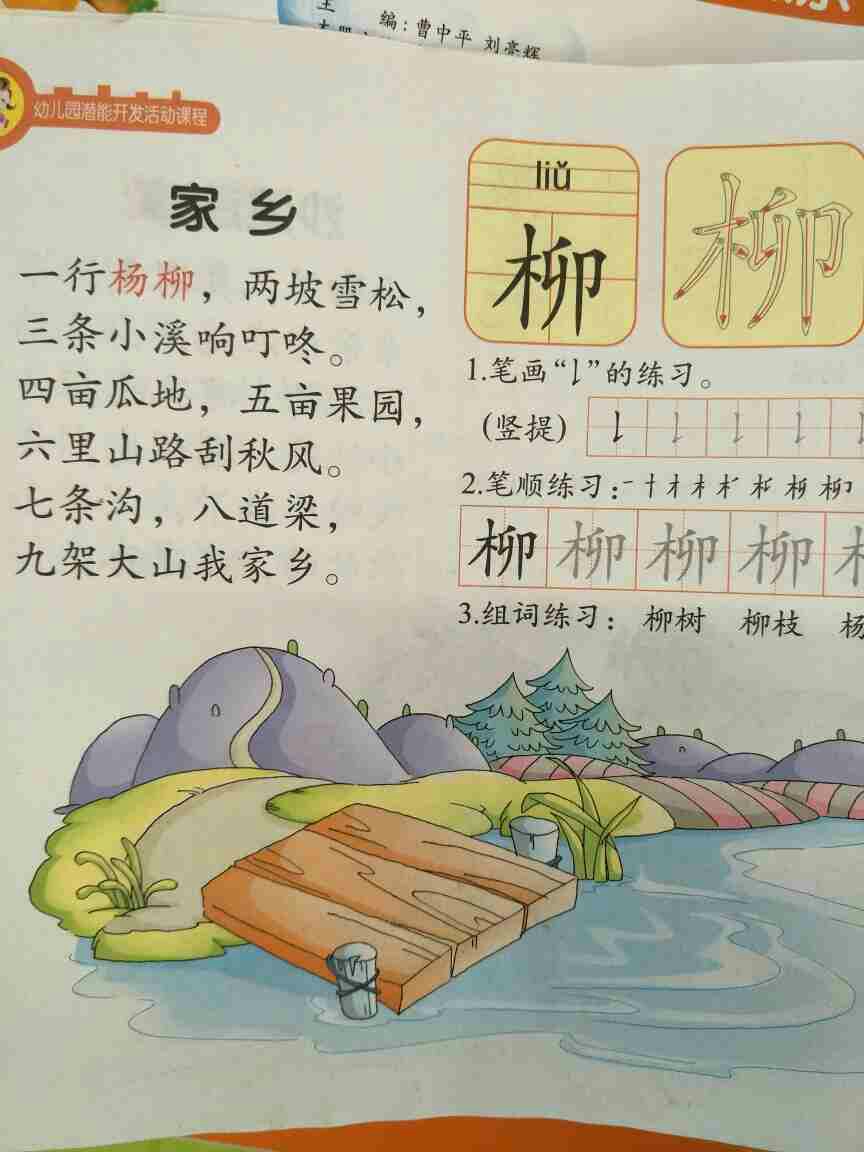 编：曹中平 刘亮辉
幼儿园潜能开发活动课程
家乡
一行杨柳，两坡雪松，
三条小溪响叮咚。
四亩瓜地，五亩果园，
六里山路刮秋风。
七条沟，八道梁，
九架大山我家乡。
liǔ
柳 柳
1.笔画“𠄌”的练习。
(竖提)
2.笔顺练习：
柳 柳 柳 柳
3.组词练习： 柳树 柳枝 杨